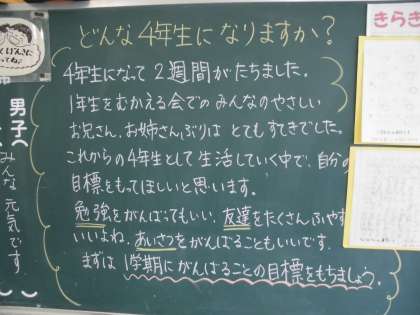 どんな4年生になりますか?
4年生になって2週間がたちました。
1年生をむかえる会でのみんなのやさしい
お兄さん、お姉さんぶりは とてもすてきでした。
これからの4年生として生活していく中で、自分の
目標をもってほしいと思います。
勉強をがんばってもいい、友達をたくさんふやす
いいよね、あいさつをがんばることもいいです。
まずは1学期にがんばることの目標をもちましょう。
男子へ
みんな元気です
きらき